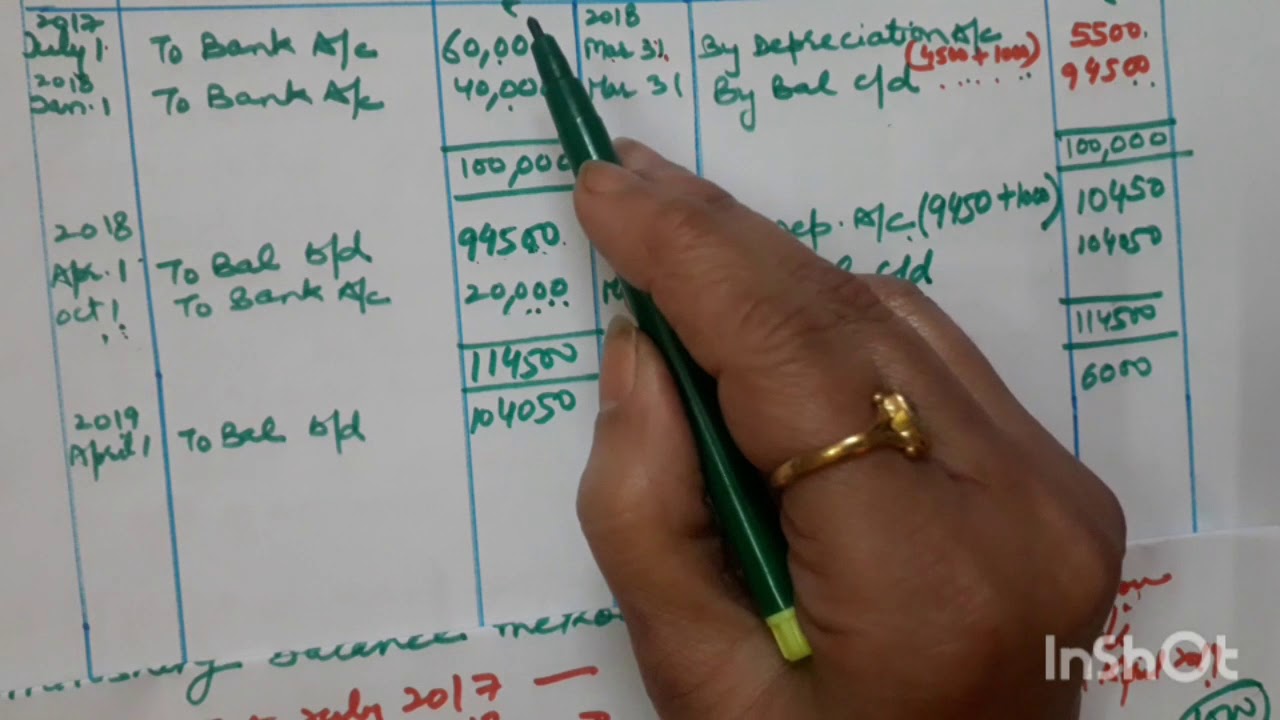 2017 2018
July 1 To Bank A/c 60,000 Mar 31 By Depreciation A/c 5500
(4500+1000)
2018
Jan. 1 To Bank A/c 40,000 Mar 31 By Bal c/d ...... 94500
100,000 100,000
2018 Dep. A/c (9450+1000) 10450
Apr. 1 To Bal b/d 94500 c/d 104050
Oct 1 To Bank A/c 20,000
114500 114500
6000
2019 104050
April 1 To Bal b/d
balances method
July 2017 —
InShOt